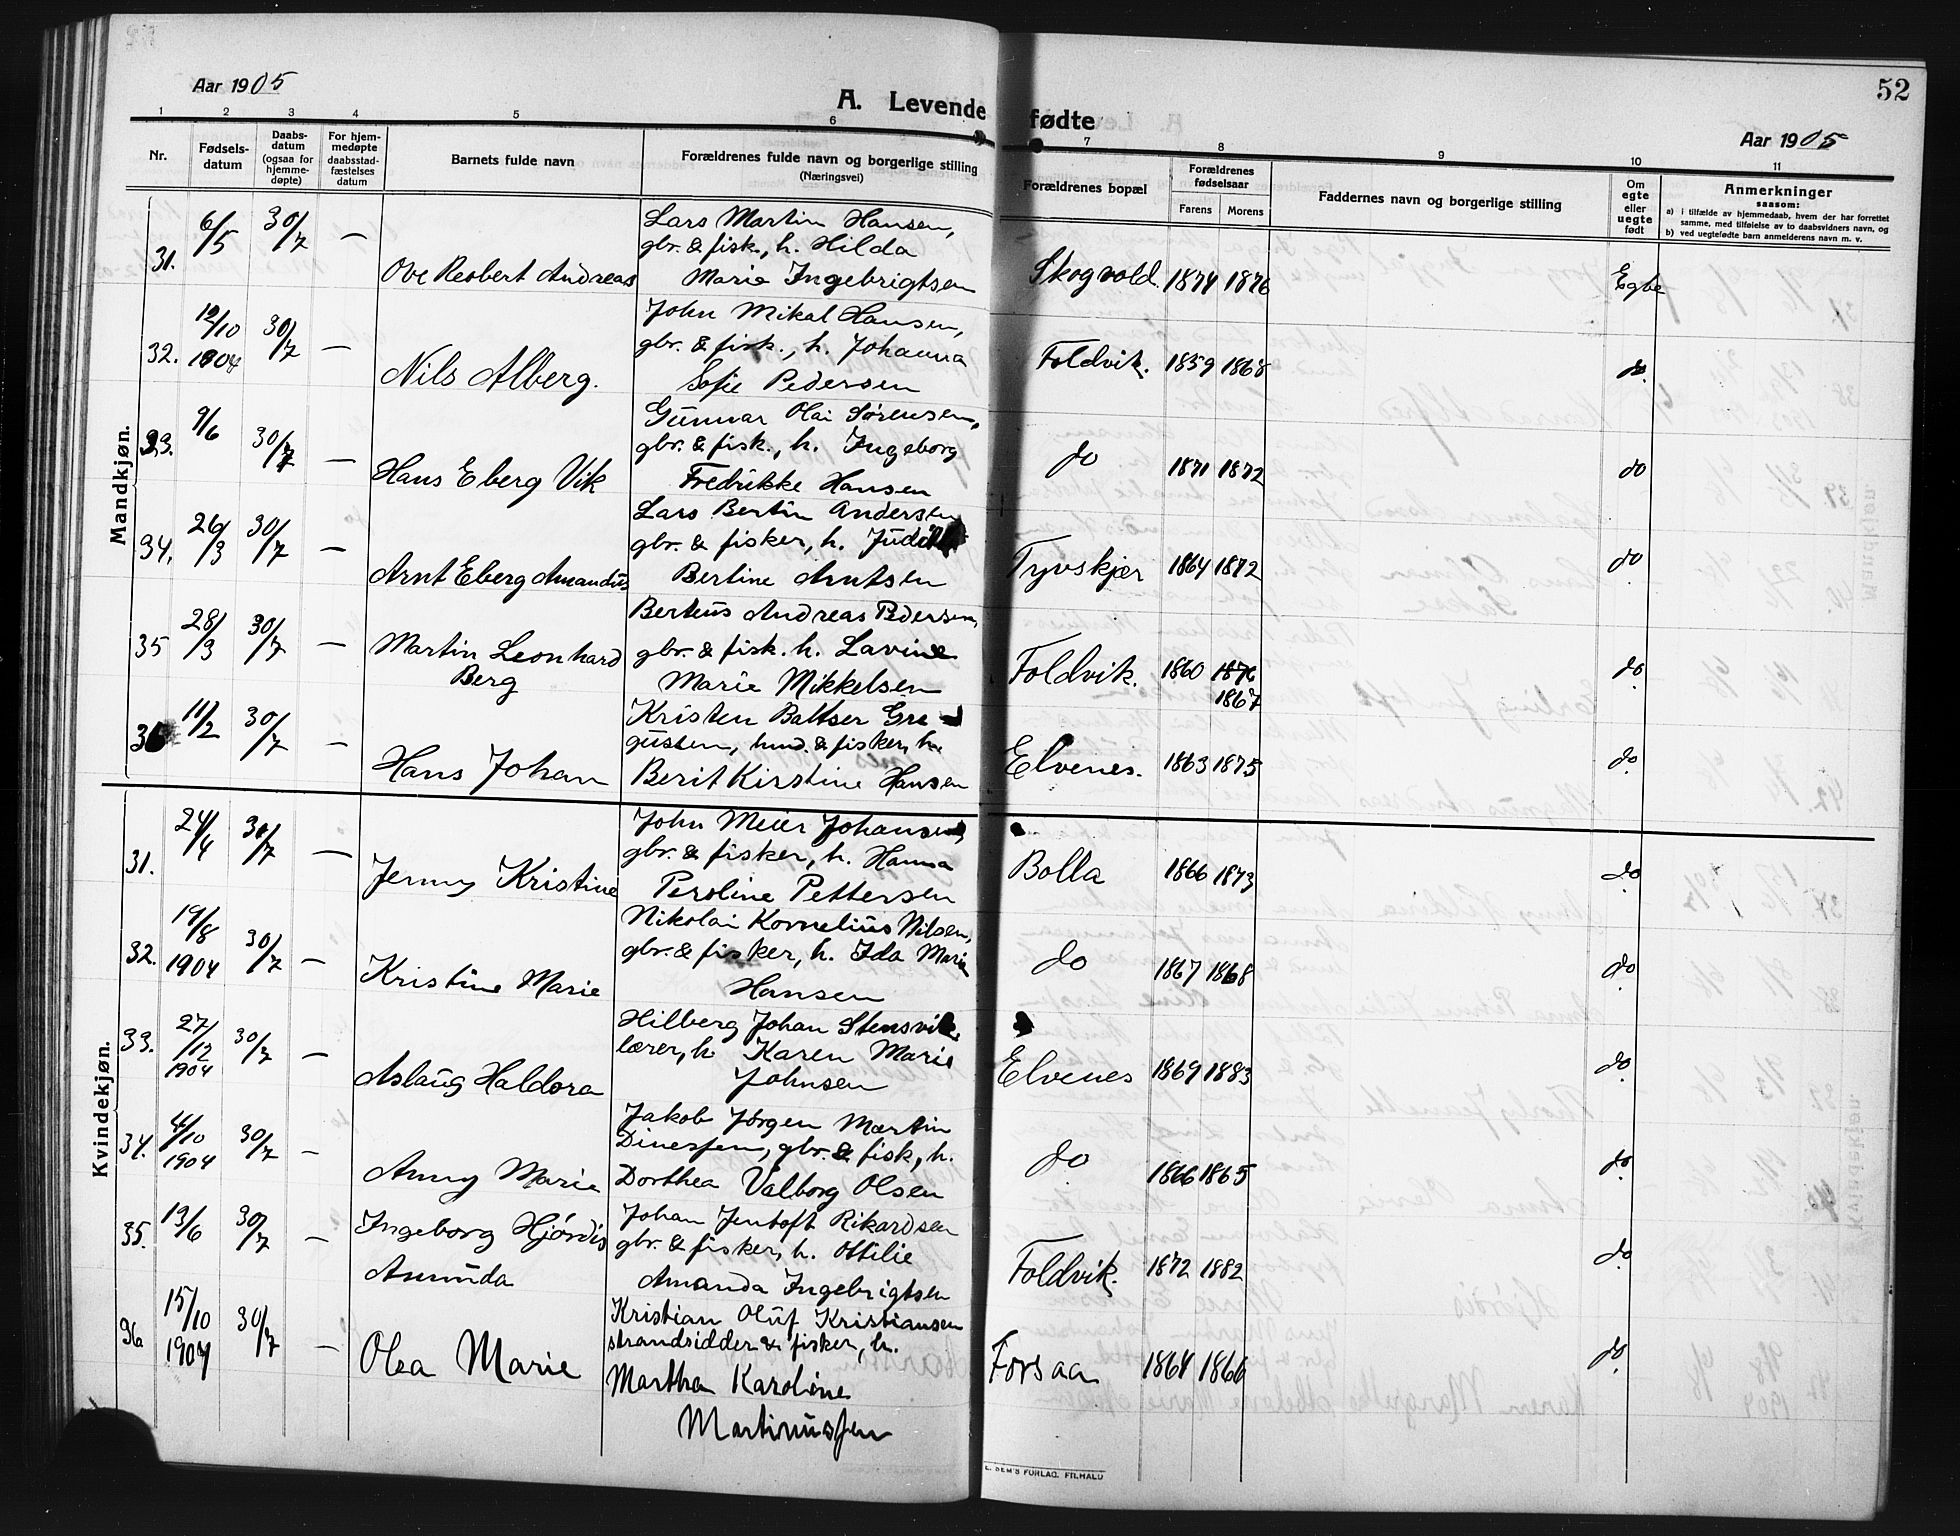 52
Aar 1905
A. Levende fødte
Aar 1905
1 2 3 4 5 6 7 8 9 10 11
Nr.
Fødsels-
datum
Daabs-
datum
(ogsaa for
hjemme-
døpte)
For hjem-
medøpte
daabsstad-
fæstelses
datum
Barnets fulde navn
Forældrenes fulde navn og borgerlige stilling
(Næringsvei)
Forældrenes bopæl
Forældrenes
fødselsaar
Farens Morens
Faddernes navn og borgerlige stilling
Om
egte
eller
uegte
født
Anmerkninger
saasom:
a) i tilfælde av hjemmedaab, hvem der har forrettet
samme, med tilføielse av to daabsvidners navn, og
b) ved uegtefødte barn anmelderens navn m. v.
Mandkjøn.
31. 6/5 30/7 — Ove Robert Andreas
Lars Martin Hansen,
gbr. & fisk., h. Hilda
Marie Ingebrigtsen
Skogvold. 1874 1876 Egte
32. 12/10 1904 30/7 — Nils Alberg.
John Mikal Hansen,
gbr. & fisk., h. Johanna
Sofie Pedersen
Foldvik. 1859 1868 do.
33. 9/6 30/7 — Hans Eberg Vik
Gunnar Olai Sørensen,
gbr. & fisk., h. Ingeborg
Fredrikke Hansen
do 1871 1872 do
34. 26/3 30/7 — Arnt Eberg Amandus
Lars Bertin Andersen
gbr. & fisker, h. Judith
Bertine Arntsen
Tyvskjær 1864 1872 do
35 28/3 30/7 — Martin Leonhard
Berg
Berteus Andreas Pedersen,
gbr. & fisk. h. Lavine
Marie Mikkelsen
Foldvik. 1860 1876
1867 do.
36 11/2 30/7 — Hans Johan
Kristen Baltser Gre-
gusten, hmd. & fisker, h.
Berit Kirstine Hansen
Elvenes. 1863 1875 do.
Kvindekjøn.
31. 24/4 30/7 — Jenny Kristine
John Meier Johansen,
gbr. & fisker, h. Hanna
Peroline Pettersen
Bolla 1866 1873 do.
32. 19/8 1904 30/7 — Kristine Marie
Nikolai Kornelius Nilsen,
gbr. & fisker, h. Ida Marie
Hansen
do 1867 1868 do.
33. 27/12 1904 30/7 — Aslaug Haldora
Hilberg Johan Stensvik,
lærer, h. Karen Marie
Johnsen
Elvenes 1869 1883 do.
34. 4/10 1904 30/7 — Anny Marie
Jakob Jørgen Martin
Dinessen, gbr. & fisk, h.
Dorthea Valborg Olsen
do. 1866 1865 do.
35. 13/6 30/7 — Ingeborg Hjørdis
Amunda
Johan Jentoft Rikardsen
gbr. & fisker, h. Ottilie
Amanda Ingebrigtsen
Foldvik. 1872 1882 do.
36 15/10 1904 30/7 — Olea Marie
Kristian Oluf Kristiansen
strandsidder & fisker, h.
Martha Karoline
Martinussen
Forsaa 1864 1866 do.
E. SEM'S FORLAG. FR.HALD